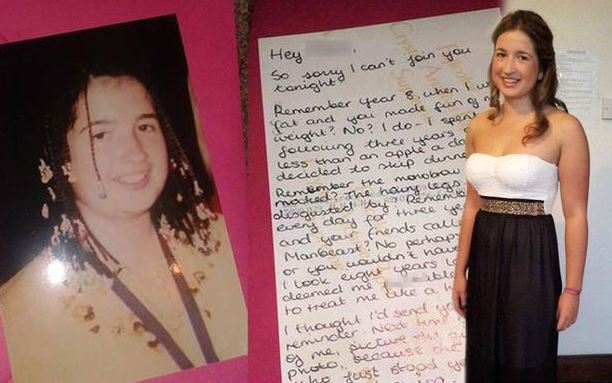 Hey
So sorry I can't join you
tonight?
Remember year 8, when I w
fat and you made fun of m
weight? No? I do - I spent
following three years
less than an apple a da
decided to skip dinn
Remember the monobrow
mocked? The hairy legs
disgusted by? Rememb
every day for three ye
and your friends calle
Manbeast? No perhap
or you wouldn't have
I look eight years l
deemed me
to treat me like a h
I thought I'd send yo
reminder. Next time
of me, picture the
photo, because the
who just stood yo